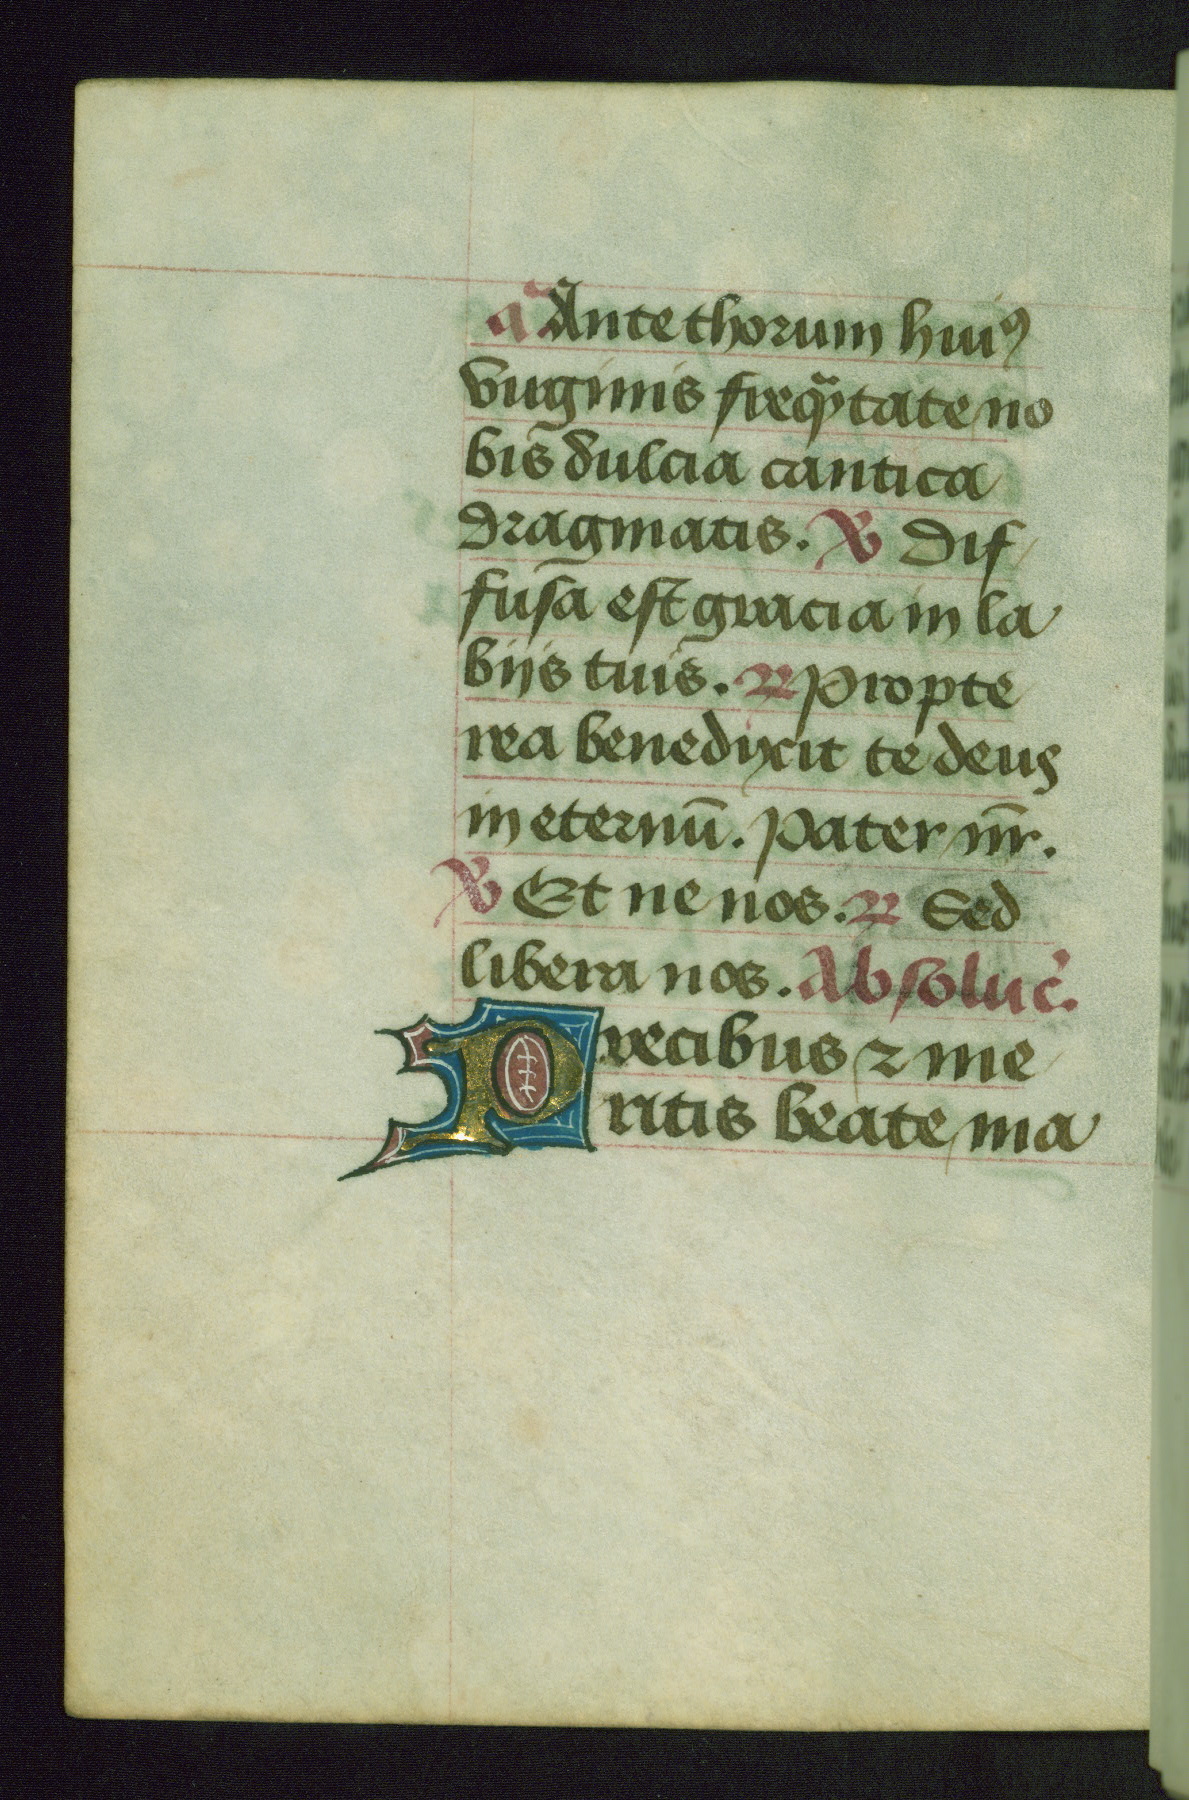 añ Ante thorum huiꝰ
virginis freq̃tate no
bis dulcia cantica
dragmatis. ℣ Dif
fusa est gracia in la
bijs tuis. ℟ Propte
rea benedixit te deus
in eternū. Pater nr̄.
℣ Et ne nos. ℟ Sed
libera nos. Absoluc̉.
Precibus ⁊ me
ritis beate ma